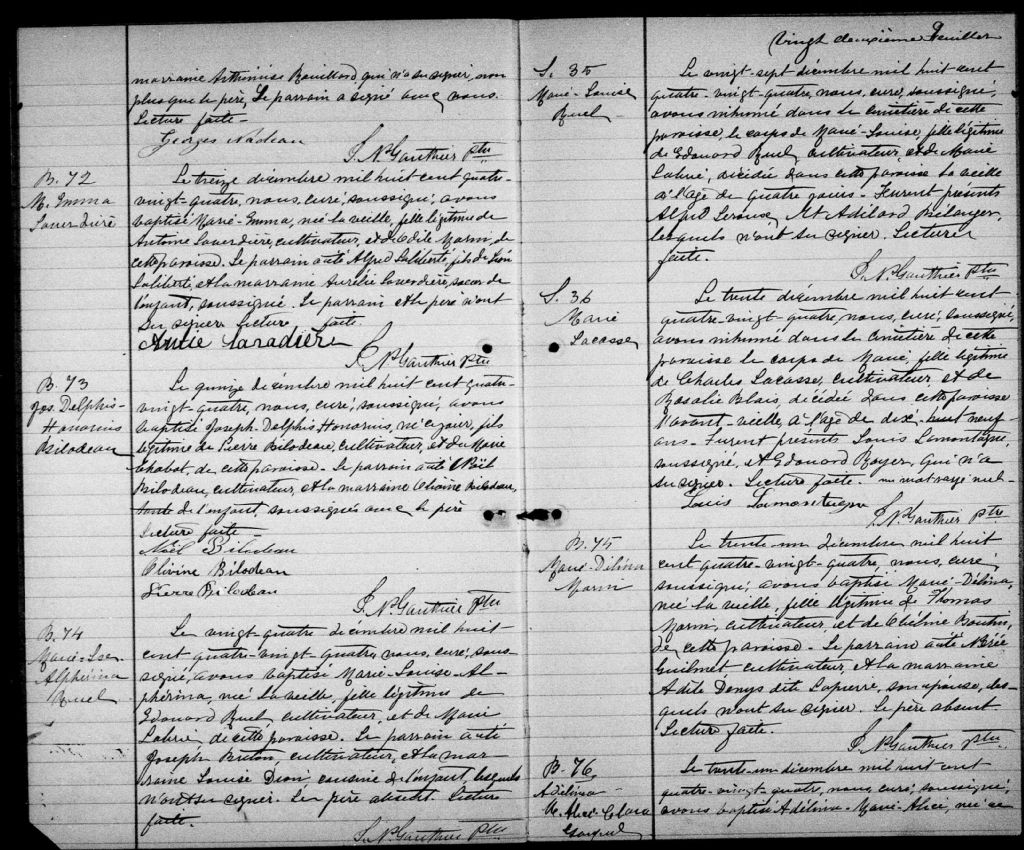 marraine Arthémise Rouillard, qui n'a su signer, non
plus que le père, Le parrain a signé avec nous.
Lecture faite -
Georges Nadeau
J. N. Gauthier Ptre
B. 72
M. Emma
Laverdière
Le treize décembre mil huit cent quatre-
vingt-quatre, nous, curé, soussigné, avons
baptisé Marie-Emma, née la veille, fille légitime de
Antoine Laverdière, cultivateur, et de Odile Morin, de
cette paroisse. Le parrain a été Alfred Laliberté, fils de Léon
Laliberté, et la marraine Aurélie Laverdière, soeur de
l'enfant, soussigné. Le parrain et le père n'ont
su signer Lecture faite.
J. N. Gauthier Ptre
B. 73
Jos. Delphis-
Honorius
Bilodeau
Le quinze décembre mil huit cent quatre-
vingt-quatre, nous, curé, soussigné, avons
baptisé Joseph-Delphis Honorius, né ce jour, fils
légitime de Pierre Bilodeau, cultivateur, et de Marie
Chabot, de cette paroisse. Le parrain a été Noël
Bilodeau, cultivateur, et la marraine Olivine Bilodeau,
tante de l'enfant, soussignés avec le père
Lecture faite -
Noël Bilodeau
Olivine Bilodeau
Pierre Bilodeau
J. N. Gauthier Ptre
B. 74
Marie-Lse-
Alphérina
Ruel
Le vingt-quatre décembre mil huit
cent quatre-vingt-quatre, nous, curé, sous-
signé, avons baptisé Marie-Louise-Al-
phérina, née la veille, fille légitime de
Edouard Ruel, cultivateur, et de Marie
Labrie, de cette paroisse. Le parrain a été
Joseph Breton, cultivateur, et la mar
raine Louise Dion cousine de l'enfant, lesquels
n'ont su signer. Le père absent. Lecture
faite.
J. N. Gauthier Ptre
Vingt deuxième Feuillet
S. 35
Marie-Louise
Ruel
Le vingt-sept décembre mil huit cent
quatre-vingt-quatre, nous, curé, soussigné,
avons inhumé dans le cimetière de cette
paroisse, le corps de Marie-Louise, fille légitime
de Edouard Ruel, cultivateur, et de Marie
Labrie, décédée dans cette paroisse la veille
à l'âge de quatre jours. Furent présents
Alfred Leroux, et Adélard Bélanger,
lesquels n'ont su signer. Lecture
faite.
J. N. Gauthier Ptre
S. 36
Marie
Lacasse
Le trente décembre mil huit cent
quatre-vingt-quatre, nous, curé, soussigné,
avons inhumé dans le cimetière de cette
paroisse le corps de Marie, fille légitime
de Charles Lacasse, cultivateur, et de
Rosalie Blais, décédée dans cette paroisse
l'avant-veille, à l'âge de dix-huit neuf
ans. Furent présents Louis Lamontagne,
soussigné, et Edouard Royer, qui n'a
su signer. Lecture faite. un mot rayé nul-
Louis Lamontagne
J. N. Gauthier Ptre
B. 75
Marie-Délina
Morin
Le trente-un décembre mil huit
cent quatre-vingt-quatre, nous, curé,
soussigné, avons baptisé Marie-Délina,
née la veille, fille légitime de Thomas
Morin, cultivateur, et de Boutin,
de cette paroisse. Le parrain a été Nérée
Guilmet cultivateur, et la marraine
Adèle Denys dite Lapierre, son épouse, les-
quels n'ont su signer. Le père absent
Lecture faite.
J. N. Gauthier Ptre
B. 76
Adélina-
M. Alice-Clara
Le trente-un décembre mil huit cent
quatre-vingt-quatre, nous, curé, soussigné,
avons baptisé Adélina-Marie-Alice, née ce